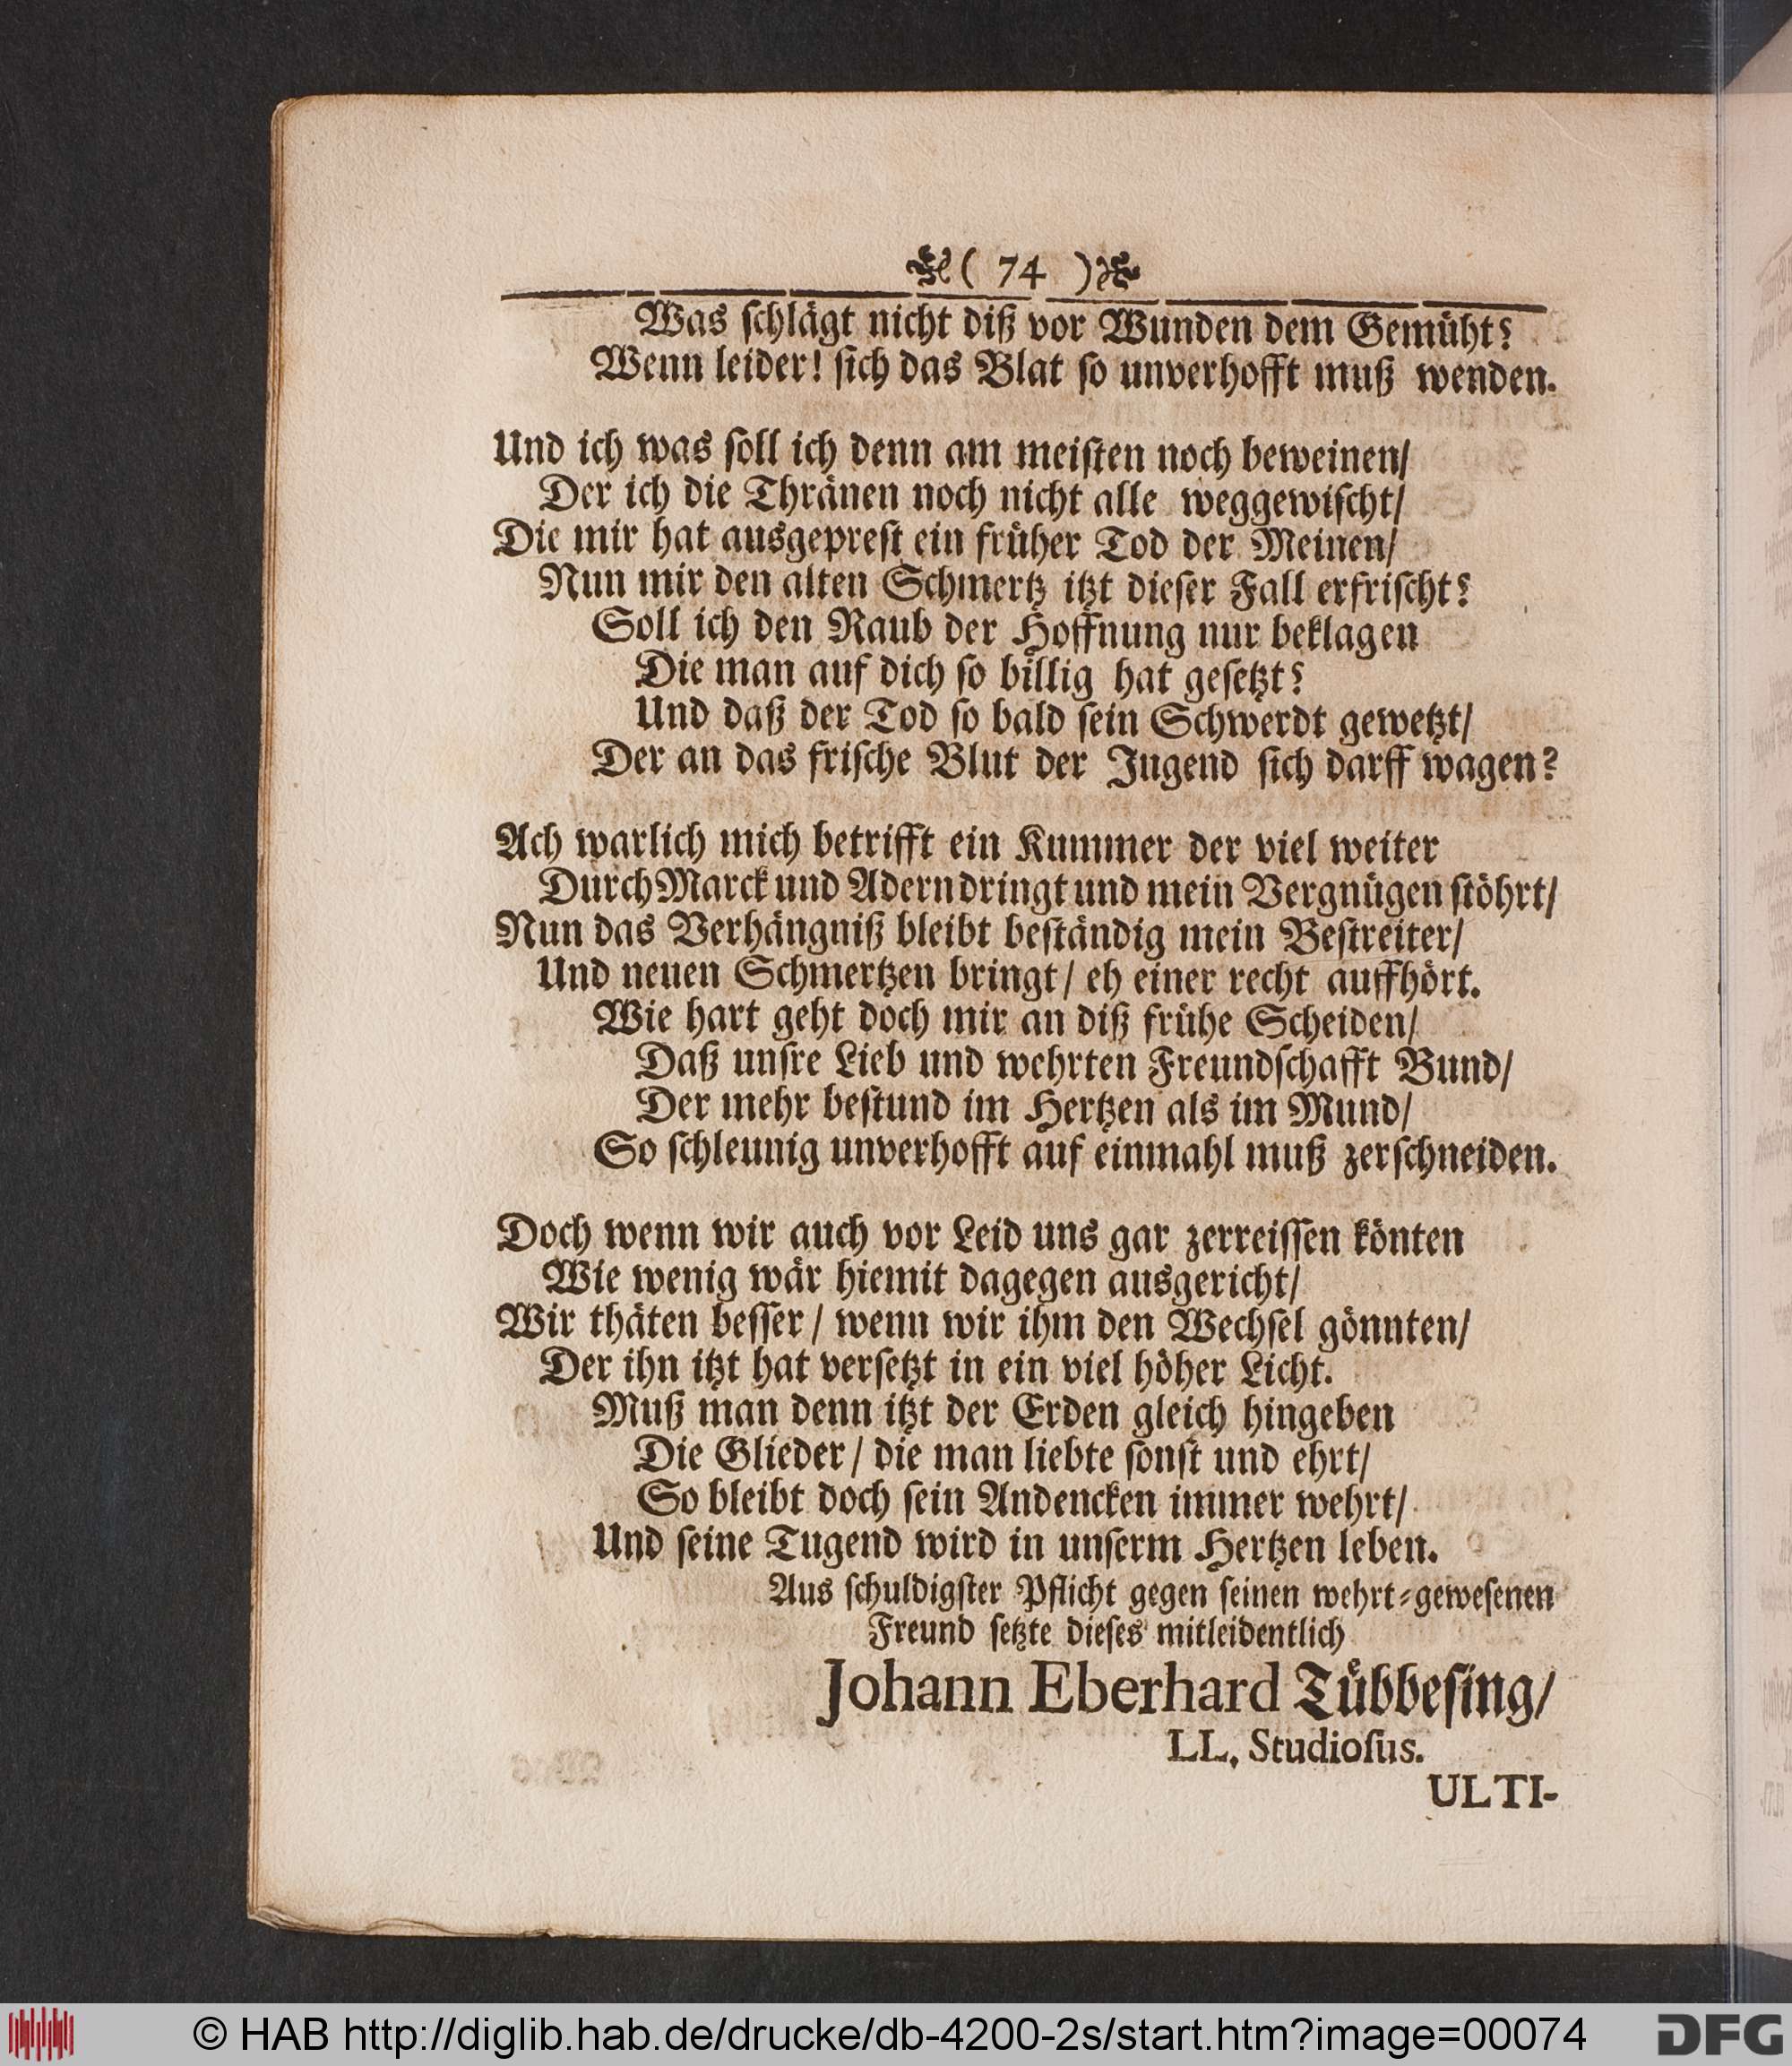 ( 74 )
Was ſchlägt nicht diß vor Wunden dem Gemüht?
Wenn leider! ſich das Blat ſo unverhofft muß wenden.
Und ich was ſoll ich denn am meiſten noch beweinen/
Der ich die Thränen noch nicht alle weggewiſcht/
Die mir hat ausgepreſt ein früher Tod der Meinen/
Nun mir den alten Schmertz itzt dieſer Fall erfriſcht?
Soll ich den Raub der Hoffnung nur beklagen
Die man auf dich ſo billig hat geſetzt?
Und daß der Tod ſo bald ſein Schwerdt gewetzt/
Der an das friſche Blut der Jugend ſich darff wagen?
Ach warlich mich betrifft ein Kummer der viel weiter
Durch Marck und Adern dringt und mein Vergnügen ſtöhrt/
Nun das Verhängniß bleibt beſtändig mein Beſtreiter/
Und neuen Schmertzen bringt/ eh einer recht auffhört.
Wie hart geht doch mir an diß frühe Scheiden/
Daß unſre Lieb und wehrten Freundſchafft Bund/
Der mehr beſtund im Hertzen als im Mund/
So ſchleunig unverhofft auf einmahl muß zerſchneiden.
Doch wenn wir auch vor Leid uns gar zerreiſſen könten
Wie wenig wär hiemit dagegen ausgericht/
Wir thäten beſſer/ wenn wir ihm den Wechſel gönnten/
Der ihn itzt hat verſetzt in ein viel höher Licht.
Muß man denn itzt der Erden gleich hingeben
Die Glieder/ die man liebte ſonſt und ehrt/
So bleibt doch ſein Andencken immer wehrt/
Und ſeine Tugend wird in unſerm Hertzen leben.
Aus ſchuldigſter Pflicht gegen ſeinen wehrt-geweſenen
Freund ſetzte dieſes mitleidentlich
Johann Eberhard Tübbeſing/
LL. Studioſus.
ULTI-
© HAB http://diglib.hab.de/drucke/db-4200-2s/start.htm?image=00074
DFG